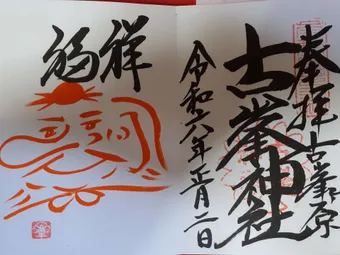 奉拝 古峯原
古峯神社
令和六年正月二日
祥
福